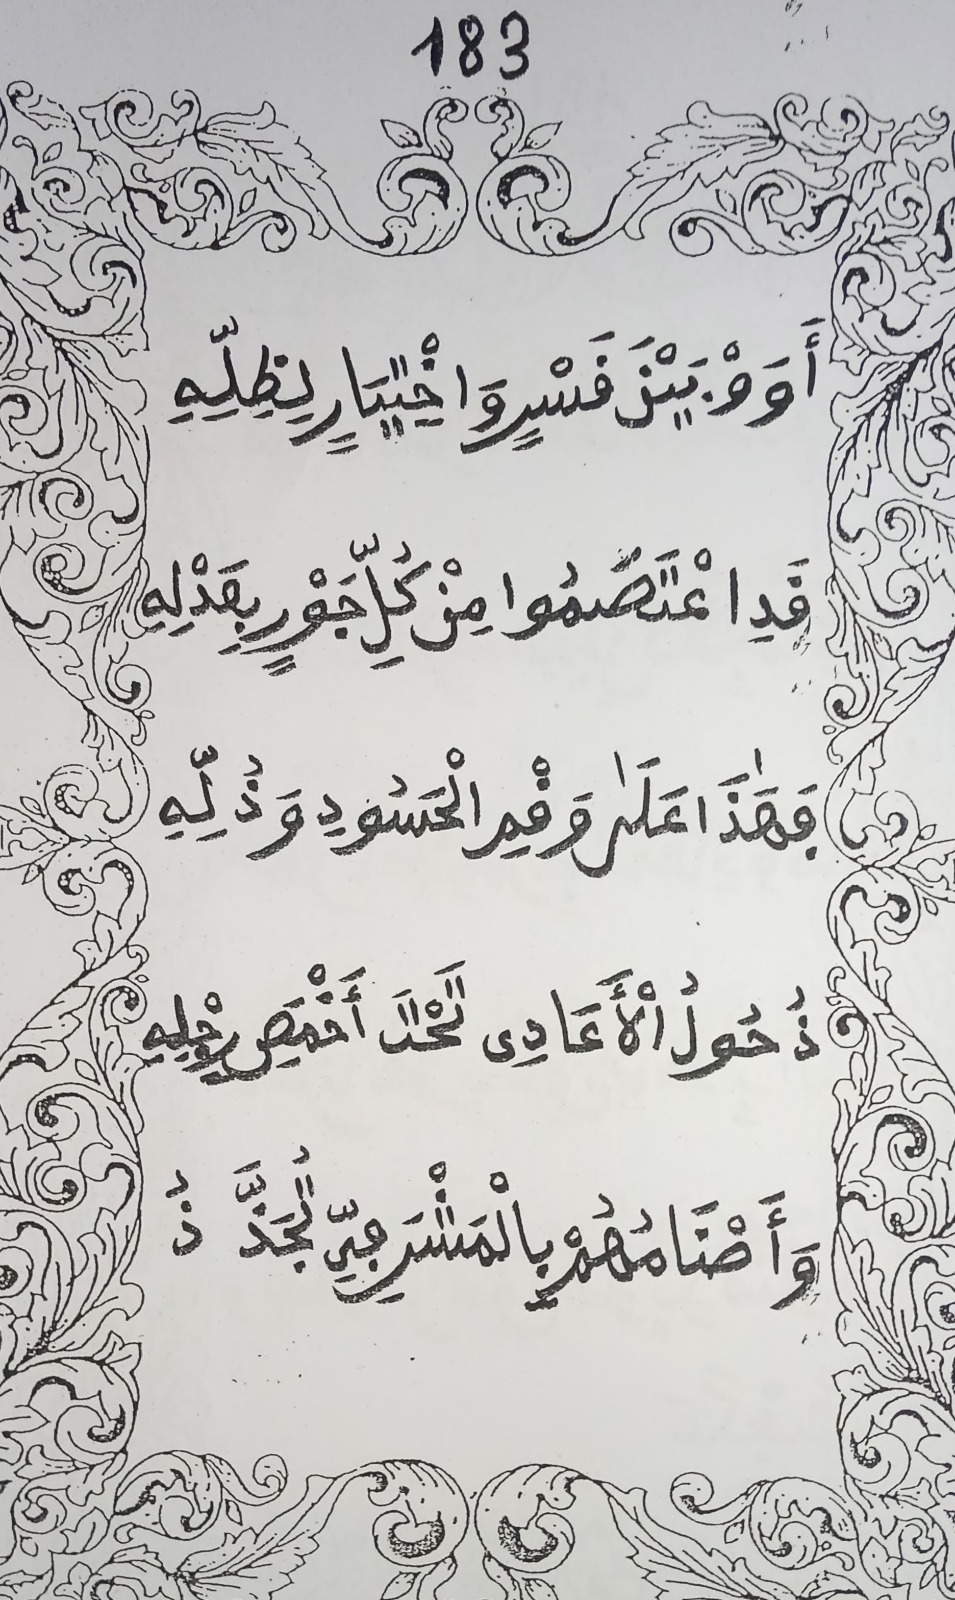 183
أَوَوْ بَيْنَ قَسْرٍ وَاخْتِيَارٍ لِظِلِّهِ
قَدِ اعْتَصَمُوا مِنْ كُلِّ جَوْرٍ بِعَدْلِهِ
فَهَٰذَا عَلَىٰ وَقْمِ الْحَسُودِ وَذُلِّهِ
ذُحُولُ الْأَعَادِى تَحْتَ أَخْمَصِ رِجْلِهِ
وَأَصْنَامُهُمْ بِالْمَشْرَفِىِّ تُجَذَّذُ